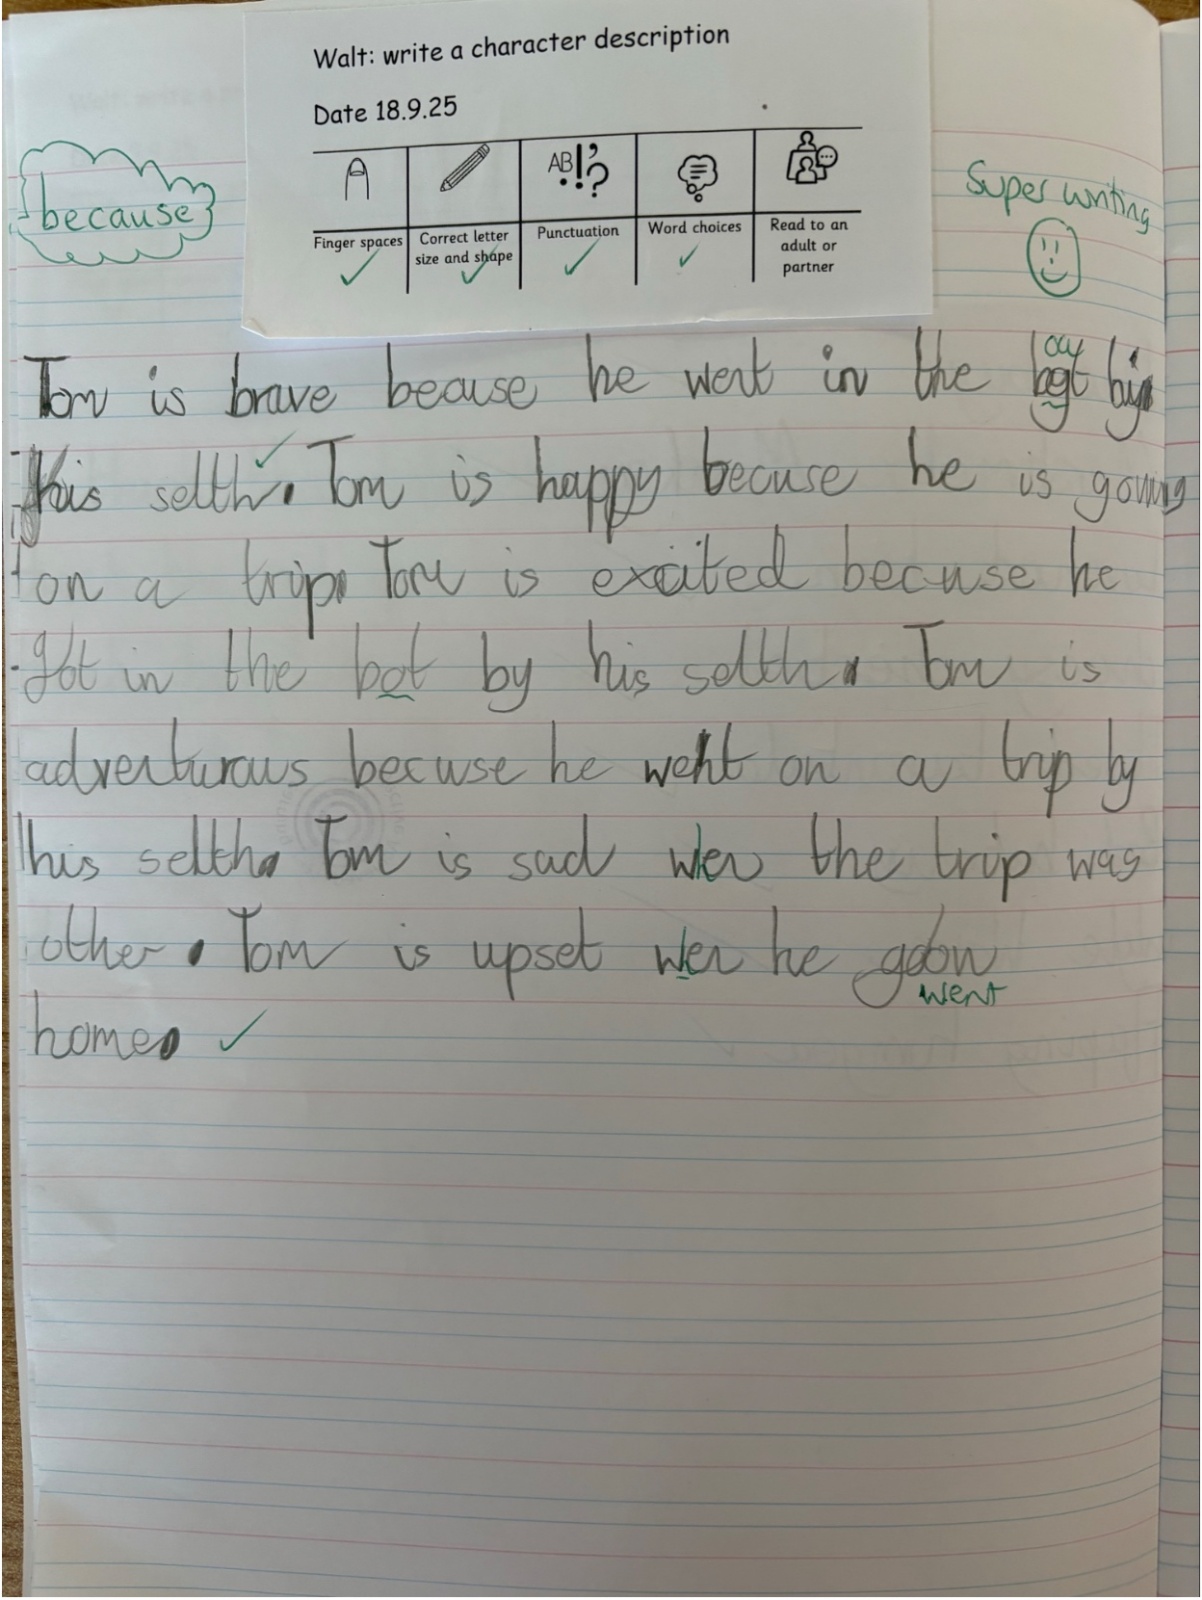 Walt: write a character description
Date 18.9.25
AB!?
Finger spaces
Correct letter size and shape
Punctuation
Word choices
Read to an adult or partner
because
Super writing
Tom is brave beause he went in the bot by
oa
his selth. Tom is happy becuse he is going
on a trip. Tom is excited becuse he
got in the bot by his selth. Tom is
adventurous becuse he weht on a trip by
his selth. Tom is sad wen the trip was
other. Tom is upset wen he
went
home.